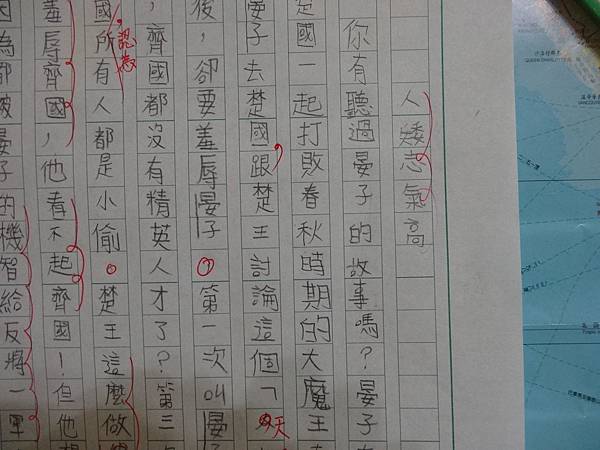 人矮志氣高
你有聽過晏子的故事嗎？晏子
國一起打敗春秋時期的大魔王
晏子去楚國，跟楚王討論這個「
天
後，卻要羞辱晏子。第一次叫晏
，齊國都沒有精英人才了？第三
認為
國所有人都是小偷。楚王這麼做
羞辱齊國，他看不起齊國！但他
因為都被晏子的機智給反將一軍